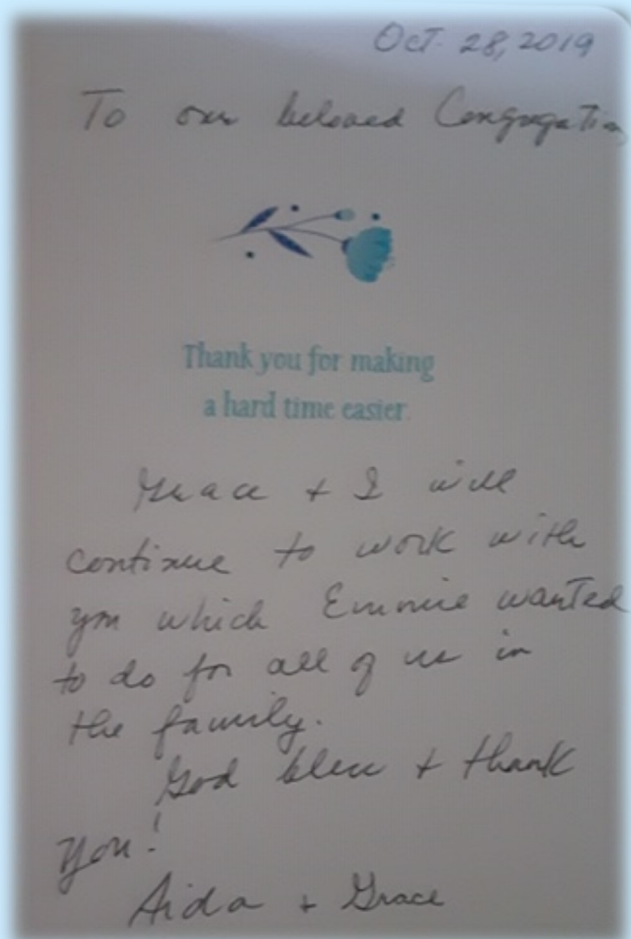 Oct. 28, 2019
To our beloved Congregation
Thank you for making
a hard time easier.
Grace + I will
continue to work with
you which Emmie wanted
to do for all of us in
the family.
God bless + thank
you!
Aida + Grace